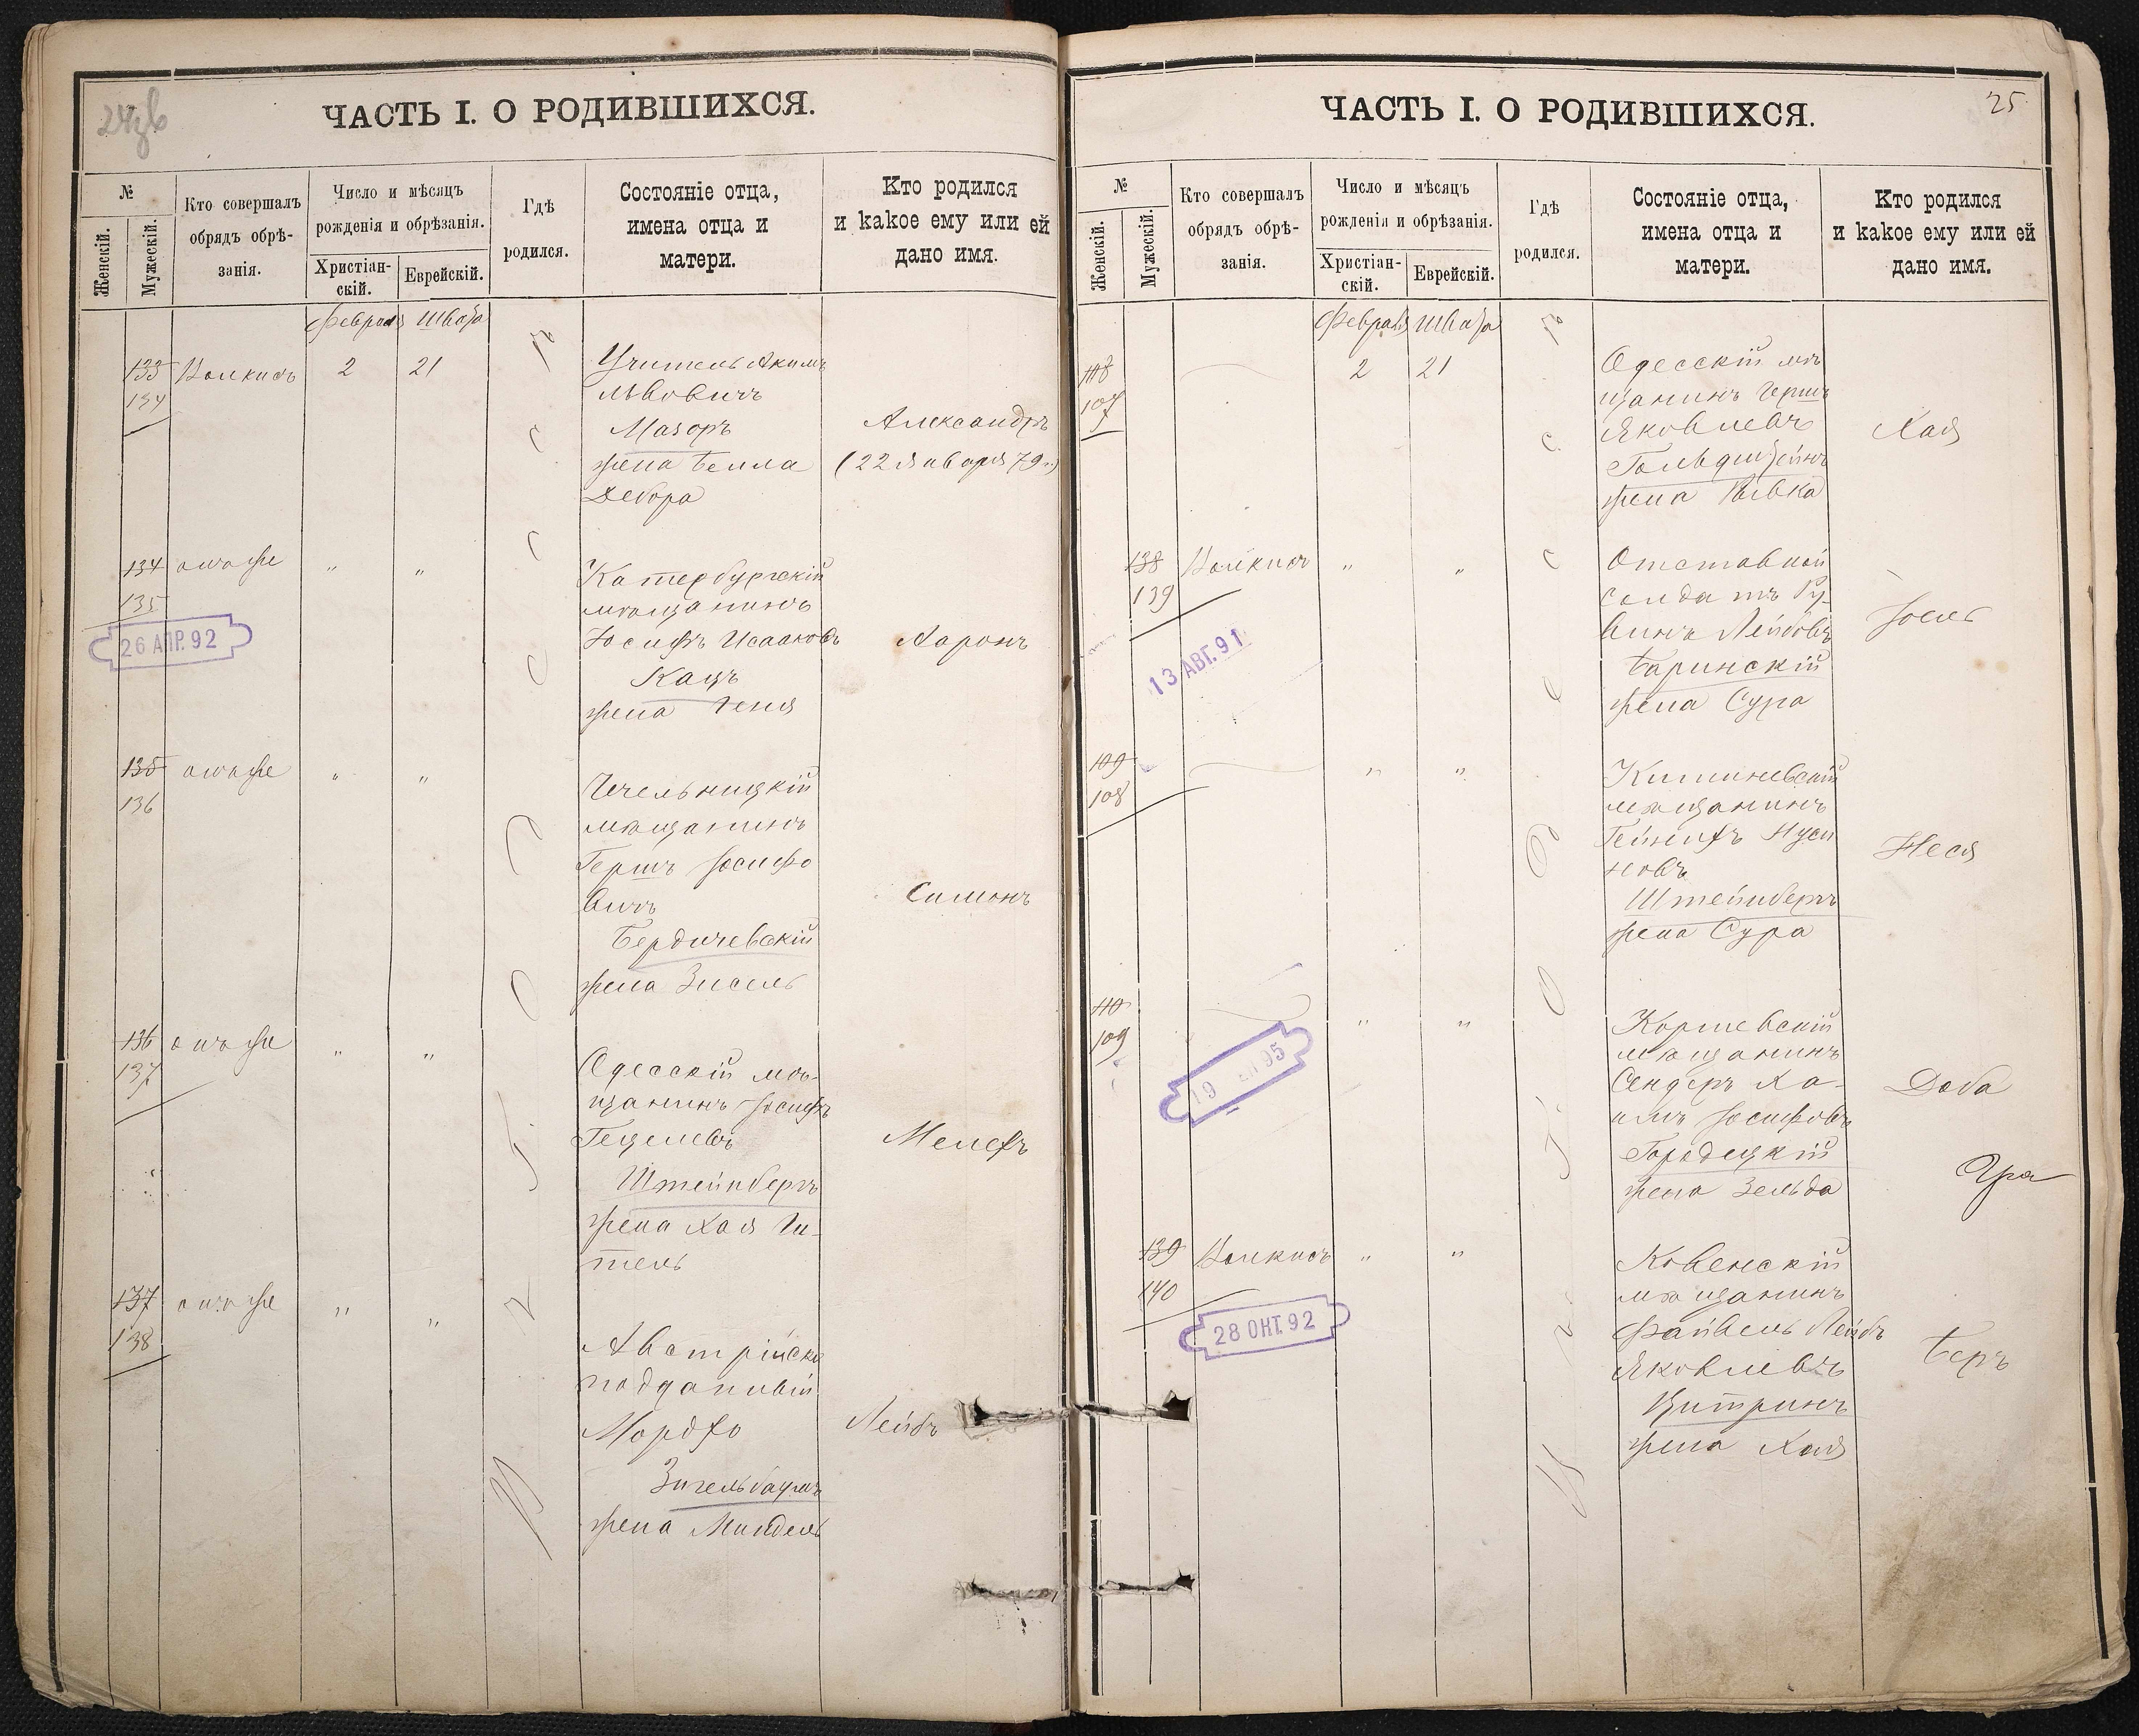 24зв
ЧАСТЬ I. О РОДИВШИХСЯ.
№
Женскій.
Мужескій.
Кто совершалъ
обрядъ обрѣ-
занія.
Число и мѣсяцъ
рожденія и обрѣзанія.
Христіан-
скій.
Еврейскій.
Гдѣ
родился.
Состояніе отца,
имена отца и
матери.
Кто родился
и какое ему или ей
дано имя.
Февраля Швата
133
134
2 21
Учитель Акимъ
Львовичъ
Мазоръ
жена Белла
Дебора
Александръ
(22 Января 79 г.)
134 онъ же " "
135
26 АПР. 92
мѣщанинъ
Іосифъ Исааковъ
Кацъ
жена Геня
Ааронъ
135 онъ же " "
136
мѣщанинъ
Гершъ Іосифо
вичъ
Бердичевскій
жена Зисель
Симонъ
136 онъ же " "
137
Одесскій мѣ-
щанинъ Іосифъ
Гецелевъ
Штейнбергъ
жена Хая Ги-
тель
Мелехъ
137 онъ же " "
138
Австрійскій
подданный
Мордхо
Зигельбаумъ
жена Миндель
Лейбъ
25
ЧАСТЬ I. О РОДИВШИХСЯ.
№
Женскій.
Мужескій.
Кто совершалъ
обрядъ обрѣ-
занія.
Число и мѣсяцъ
рожденія и обрѣзанія.
Христіан-
скій.
Еврейскій.
Гдѣ
родился.
Состояніе отца,
имена отца и
матери.
Кто родился
и какое ему или ей
дано имя.
Февраля Швата
108
107
2 21
Одесскій мѣ
щанинъ Гершъ
Яковлевъ
Гольдштейнъ
жена Ривка
Хая
138 " "
139
13 АВГ. 91
Отставной
солдатъ Ру-
винъ Лейбовъ
Баринскій
жена Сура
Іосль
109 " "
108
Кишиневскій
мѣщанинъ
Гейнихъ Нуси
новъ
Штейнбергъ
жена Сура
Неся
110 " "
109
19 95
мѣщанинъ
Сендеръ Ха-
имъ Іосифовъ
Городецкій
жена Зельда
Доба
139 " "
140
28 ОКТ. 92
Ковенскій
мѣщанинъ
Файвель Лейбъ
Яковлевъ
Цитринъ
жена Хая
Беръ